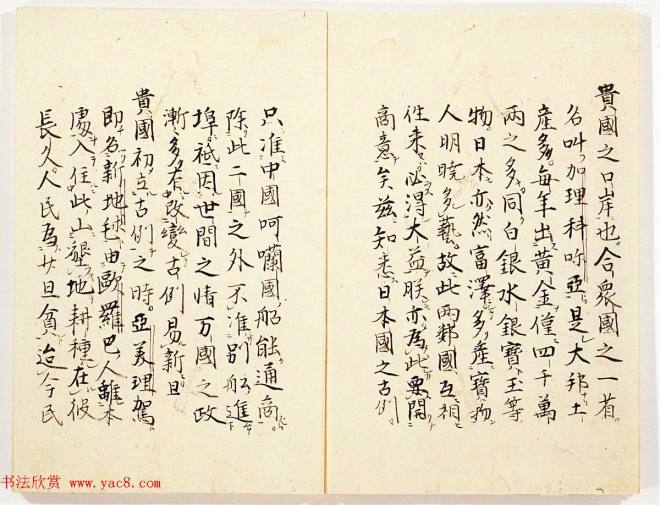 貴國之口岸也。合衆國之一省。
名叫加理科呀亞是大邦土
產多。每年出黃金僅四千萬
兩之多。同白銀水銀寶玉等
物。日本亦然富澤多產寶物
人明曉多藝。故此兩鄰國互相
往來。必得大益。朕亦為此要開
商意矣。茲知悉日本國之古例
只准中國呵囒國船能通商
除此二國之外不准別船進
埠。祇因世間之情万國之政
漸多有改變古例易新。且
貴國初立古例之時。亞美理駕
即名新地球。由歐羅巴人離本
處入住此山。地耕種。在彼
長久人民為廿且貧。迨今民
书法欣赏 www.yac8.com